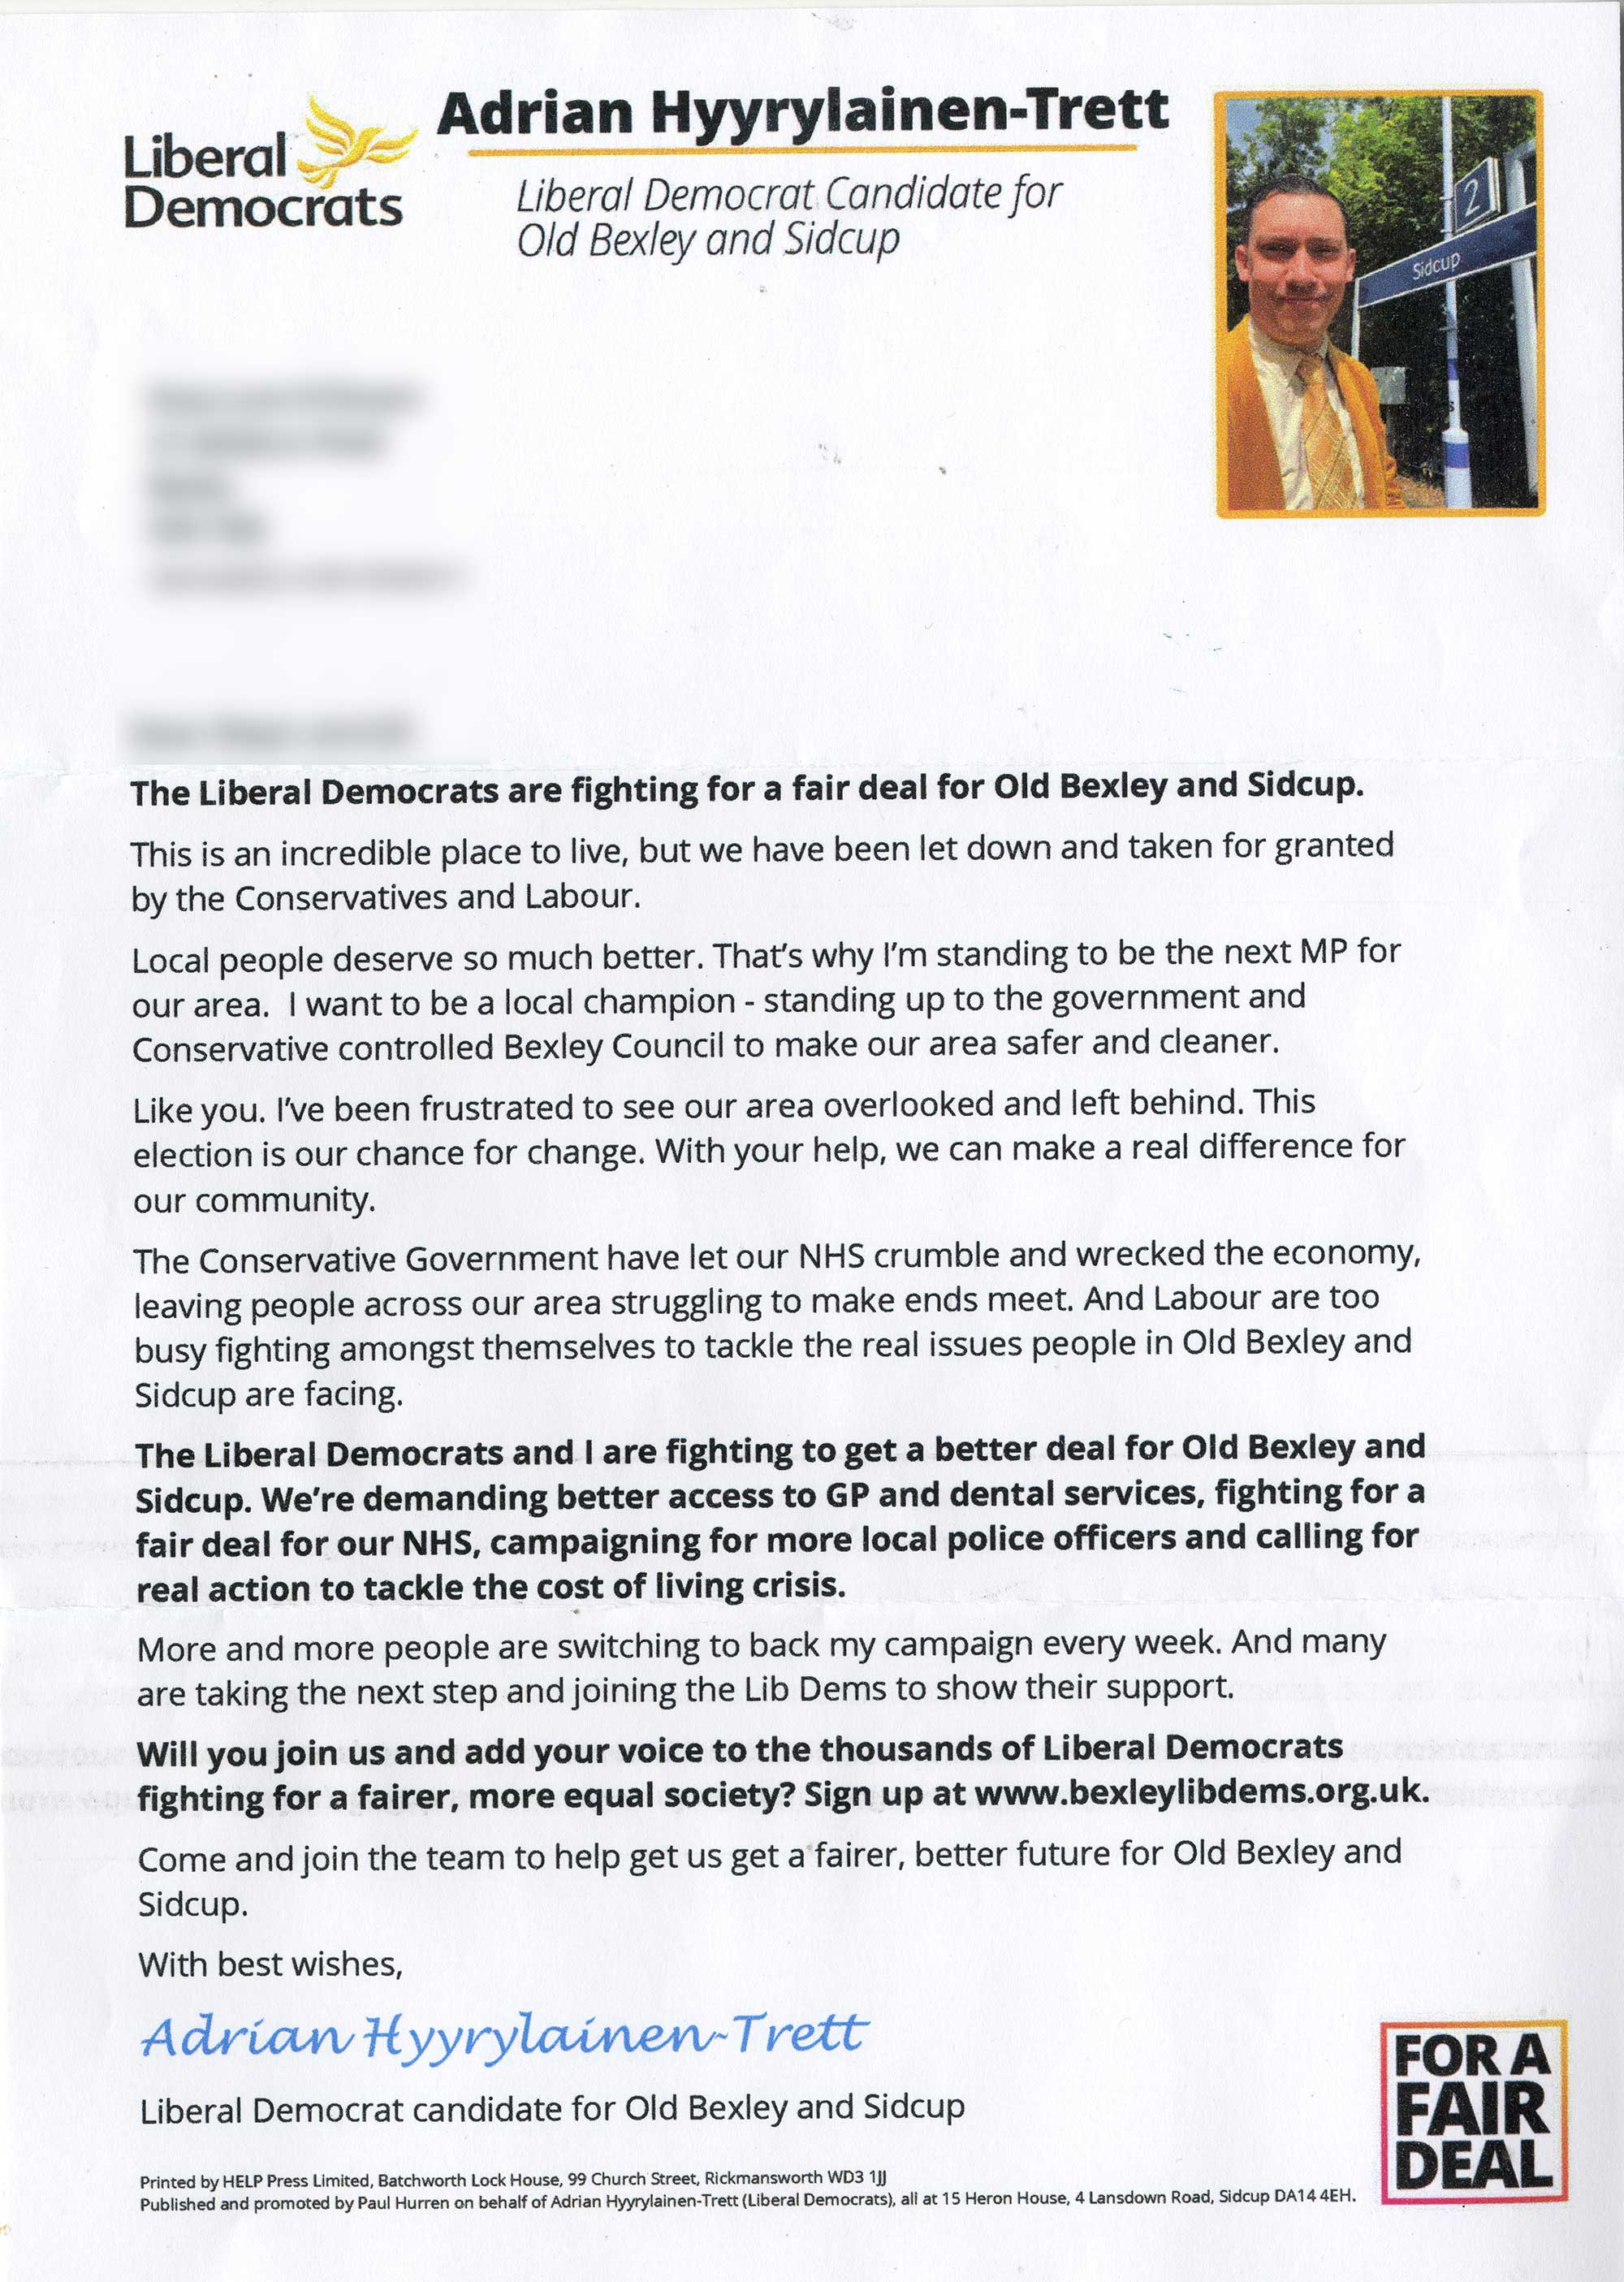 Liberal
Democrats
Adrian Hyyrylainen-Trett
Liberal Democrat Candidate for
Old Bexley and Sidcup
2
Sidcup
The Liberal Democrats are fighting for a fair deal for Old Bexley and Sidcup.
This is an incredible place to live, but we have been let down and taken for granted
by the Conservatives and Labour.
Local people deserve so much better. That's why I'm standing to be the next MP for
our area.  I want to be a local champion - standing up to the government and
Conservative controlled Bexley Council to make our area safer and cleaner.
Like you. I've been frustrated to see our area overlooked and left behind. This
election is our chance for change. With your help, we can make a real difference for
our community.
The Conservative Government have let our NHS crumble and wrecked the economy,
leaving people across our area struggling to make ends meet. And Labour are too
busy fighting amongst themselves to tackle the real issues people in Old Bexley and
Sidcup are facing.
The Liberal Democrats and I are fighting to get a better deal for Old Bexley and
Sidcup. We're demanding better access to GP and dental services, fighting for a
fair deal for our NHS, campaigning for more local police officers and calling for
real action to tackle the cost of living crisis.
More and more people are switching to back my campaign every week. And many
are taking the next step and joining the Lib Dems to show their support.
Will you join us and add your voice to the thousands of Liberal Democrats
fighting for a fairer, more equal society? Sign up at www.bexleylibdems.org.uk.
Come and join the team to help get us get a fairer, better future for Old Bexley and
Sidcup.
With best wishes,
Adrian Hyyrylainen-Trett
Liberal Democrat candidate for Old Bexley and Sidcup
Printed by HELP Press Limited, Batchworth Lock House, 99 Church Street, Rickmansworth WD3 1JJ
Published and promoted by Paul Hurren on behalf of Adrian Hyyrylainen-Trett (Liberal Democrats), all at 15 Heron House, 4 Lansdown Road, Sidcup DA14 4EH.
FOR A
FAIR
DEAL